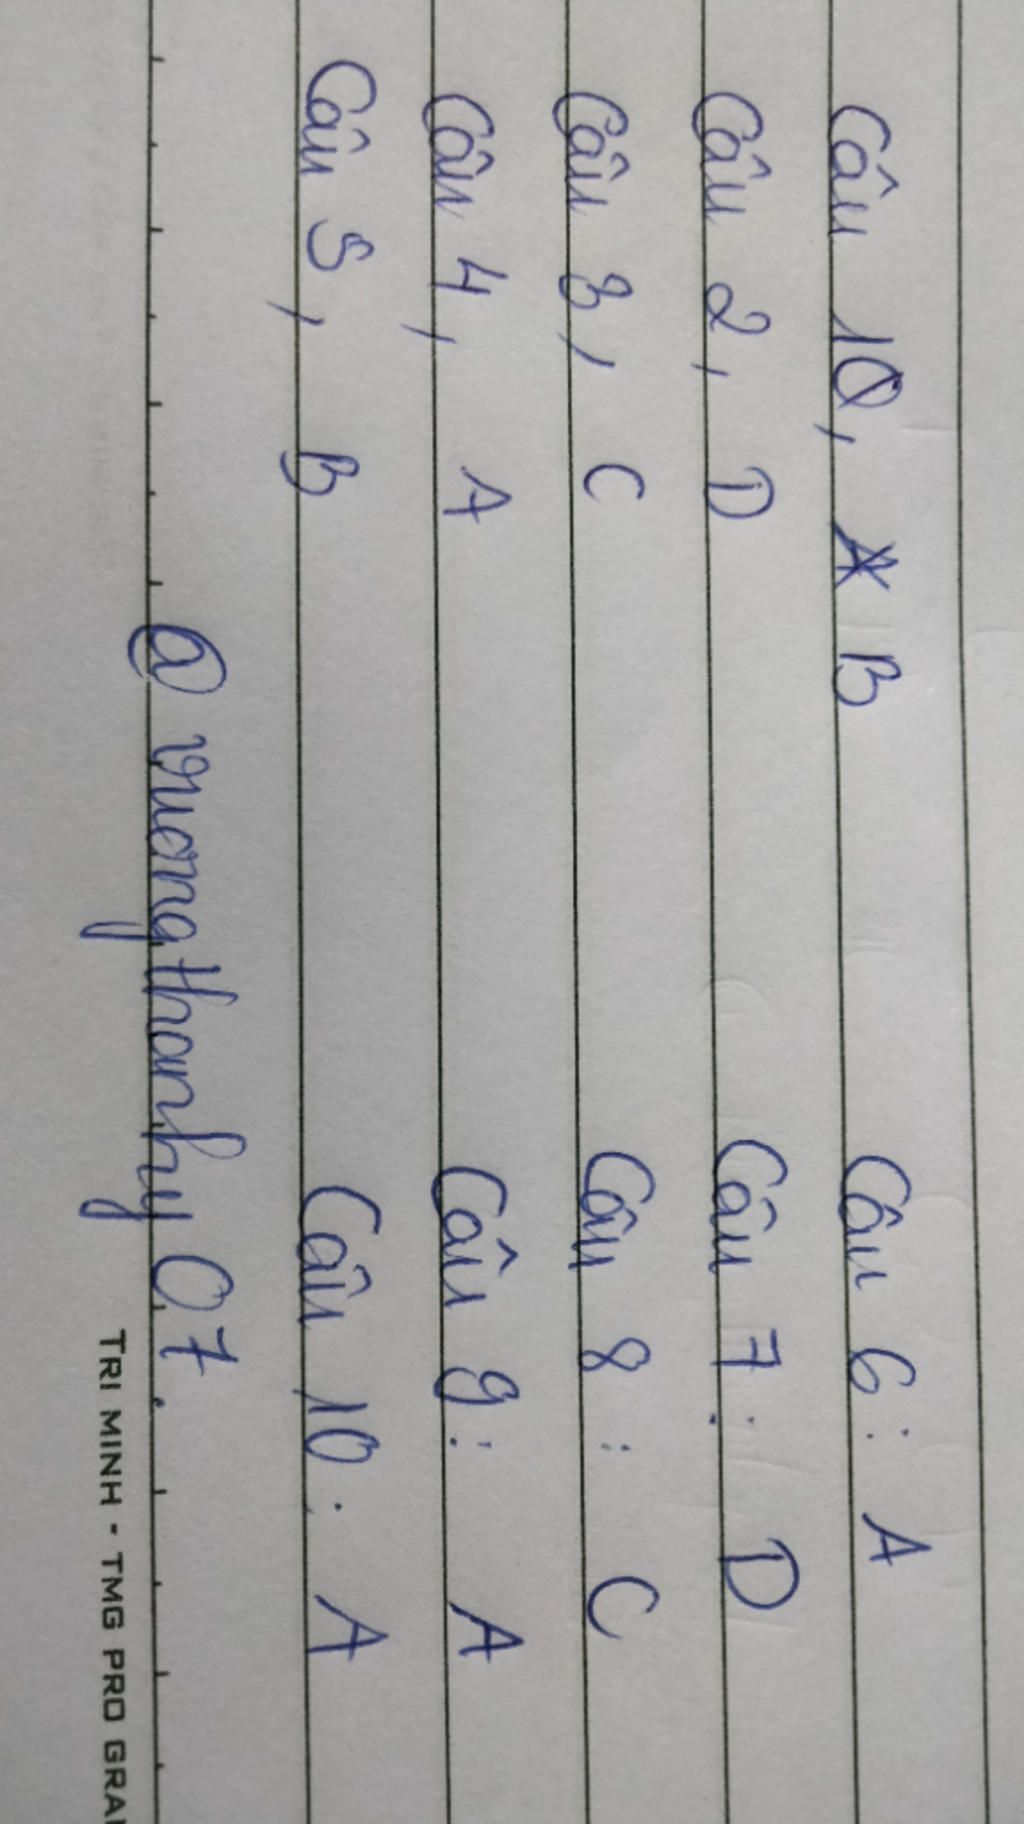 Câu 1, B Câu 6: A
Câu 2, D Câu 7: D
Câu 3, C Câu 8: C
Câu 4, A Câu 9: A
Câu 5, B Câu 10: A
@vuongthanhy07.
TRI MINH - TMG PRO GRA